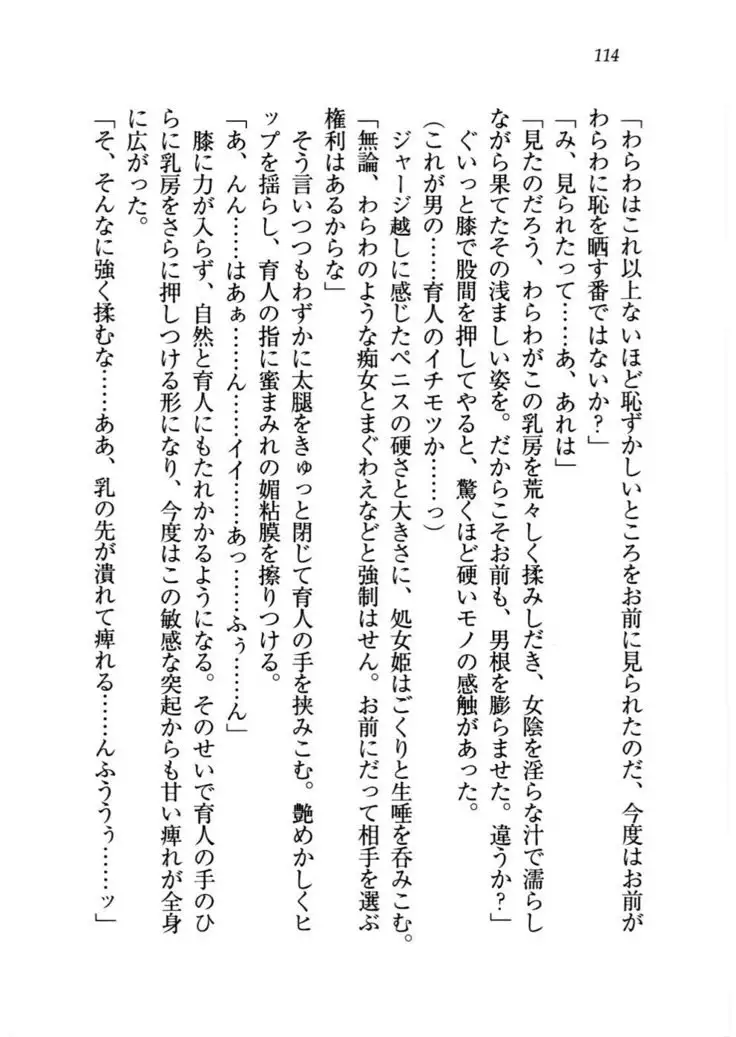 114
「わらわはこれ以上ないほど恥ずかしいところをお前に見られたのだ、今度はお前が
わらわに恥を晒す番ではないか?」
「み、見られたって……あ、あれは」
「見たのだろう、わらわがこの乳房を荒々しく揉みしだき、女陰を淫らな汁で濡らし
ながら果てたその浅ましい姿を。だからこそお前も、男根を膨らませた。違うか?」
ぐいっと膝で股間を押してやると、驚くほど硬いモノの感触があった。
(これが男の……育人のイチモツか……っ)
ジャージ越しに感じたペニスの硬さと大きさに、処女姫はごくりと生唾を呑みこむ。
「無論、わらわのような痴女とまぐわえなどと強制はせん。お前にだって相手を選ぶ
権利はあるからな」
そう言いつつもわずかに太腿をきゅっと閉じて育人の手を挟みこむ。艶めかしくヒ
ップを揺らし、育人の指に蜜まみれの媚粘膜を擦りつける。
「あ、んん……はあぁ……ん……イイ……あっ……ふぅ……ん」
膝に力が入らず、自然と育人にもたれかかるようになる。そのせいで育人の手のひ
らに乳房をさらに押しつける形になり、今度はこの敏感な突起からも甘い痺れが全身
に広がった。
「そ、そんなに強く揉むな……ああ、乳の先が潰れて痺れる……んふううぅ……ッ」